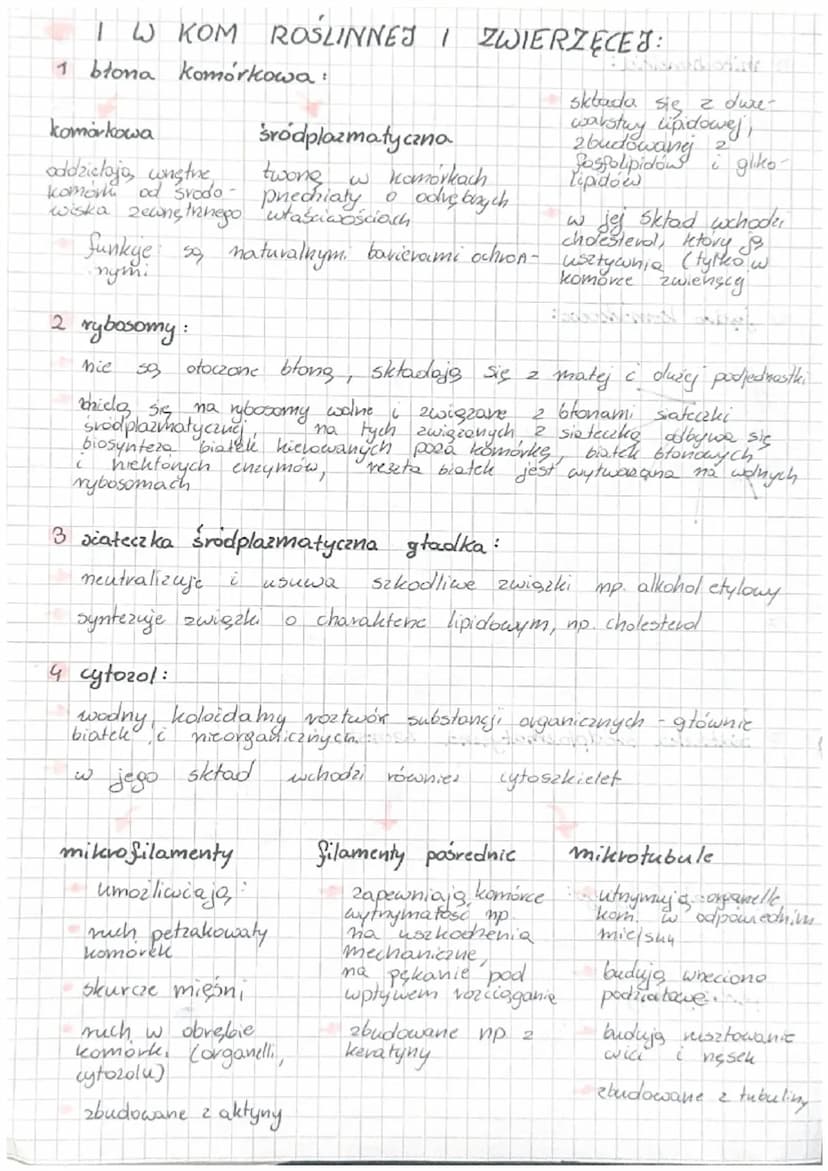 I W KOM ROŚLINNEJ I ZWIERZĘCEJ:
1 błona komórkowa:
komórkowa
oddzielają wnętrze
komórki od środo-
wiska zewnętrznego
śródplazmatyczna
tworzą w komórkach
przedziały o odrębnych
właściwościach
funkcje: są naturalnymi barierami ochron-
nymi
składa się z dwu-
warstwy lipidowej,
zbudowanej z
fosfolipidów i gliko-
lipidów
w jej skład wchodzi
cholesterol, który ją
usztywnia (tylko w
komórce zwierzęcej
2 rybosomy:
nie są otoczone błoną, składają się z małej i dużej podjednostki
dzielą się na rybosomy wolne i związane z błonami siateczki
śródplazmatycznej, na tych związanych z siateczką odbywa się
biosynteza białek kierowanych poza komórkę, białek błonowych
i niektórych enzymów, reszta białek jest wytwarzana na wolnych
rybosomach
3 siateczka śródplazmatyczna gładka:
neutralizuje i usuwa szkodliwe związki np. alkohol etylowy
syntezuje związki o charakterze lipidowym, np. cholesterol
4 cytozol:
wodny, koloidalny roztwór substancji organicznych - głównie
białek, i nieorganicznych.
w jego skład wchodzi również cytoszkielet
mikrofilamenty
umożliwiają:
ruch pełzakowaty
komórek
skurcze mięśni
ruch w obrębie
komórki (organelli,
cytozolu)
zbudowane z aktyny
filamenty pośrednie
zapewniają komórce
wytrzymałość np.
na uszkodzenia
mechaniczne,
na pękanie pod
wpływem rozciągania
zbudowane np z
keratyny
mikrotubule
utrzymują organelle
kom. w odpowiednim
miejscu
budują wrzeciono
podziałowe
budują rusztowanie
wici i rzęsek
zbudowane z tubuliny